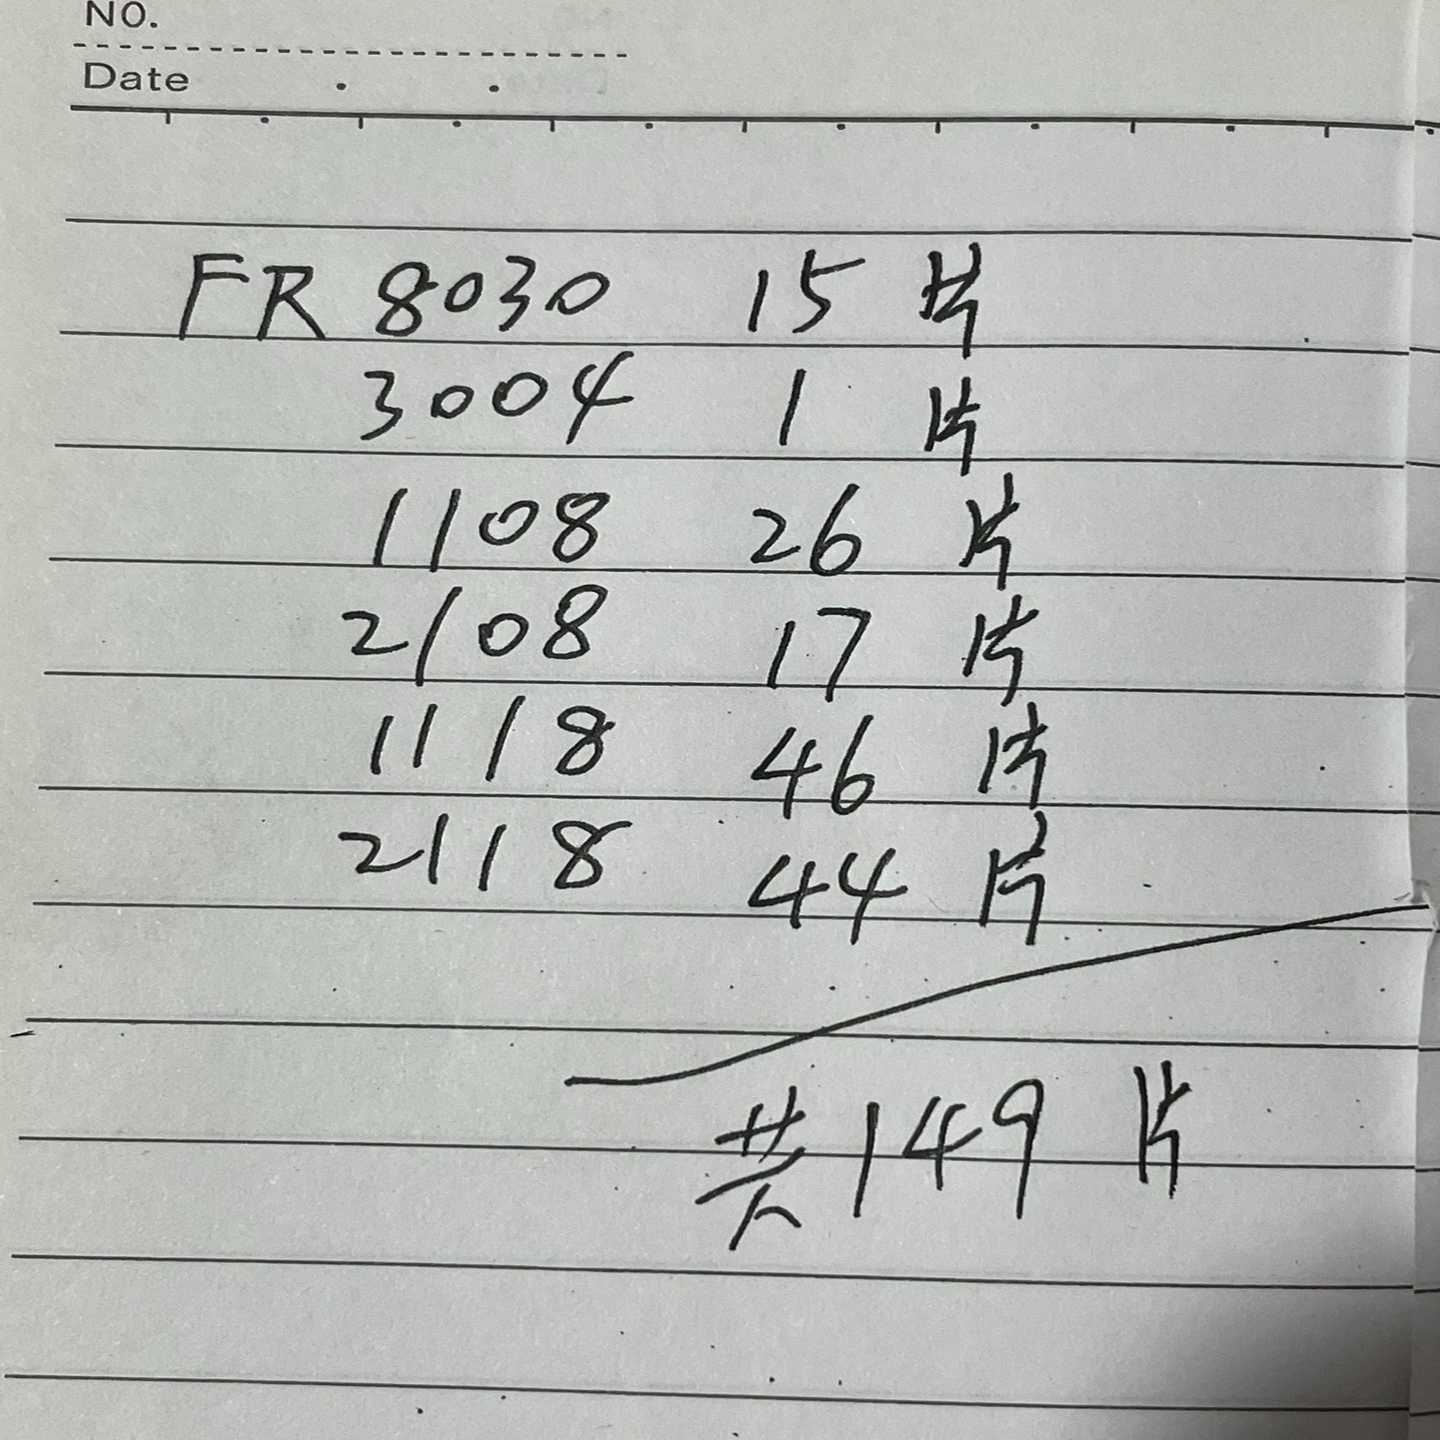 NO.
Date . .
FR 8030 15 片
3004 1 片
1108 26 片
2108 17 片
1118 46 片
2118 44 片
共 149 片